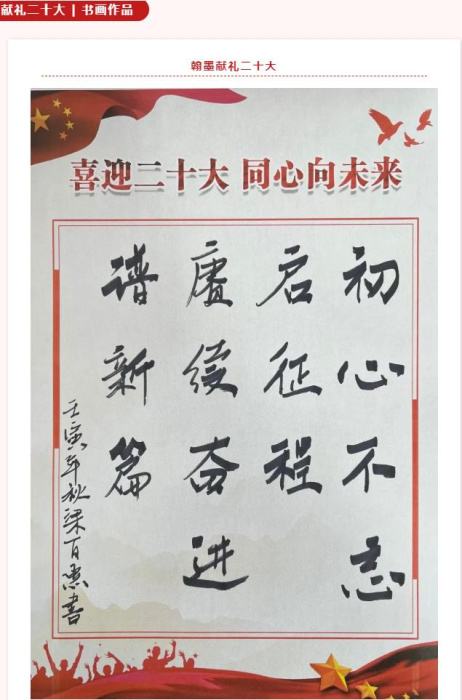 献礼二十大 | 书画作品
翰墨献礼二十大
喜迎二十大 同心向未来
初心不忘
启征程
赓续奋进
谱新篇
壬寅年秋梁百惠书